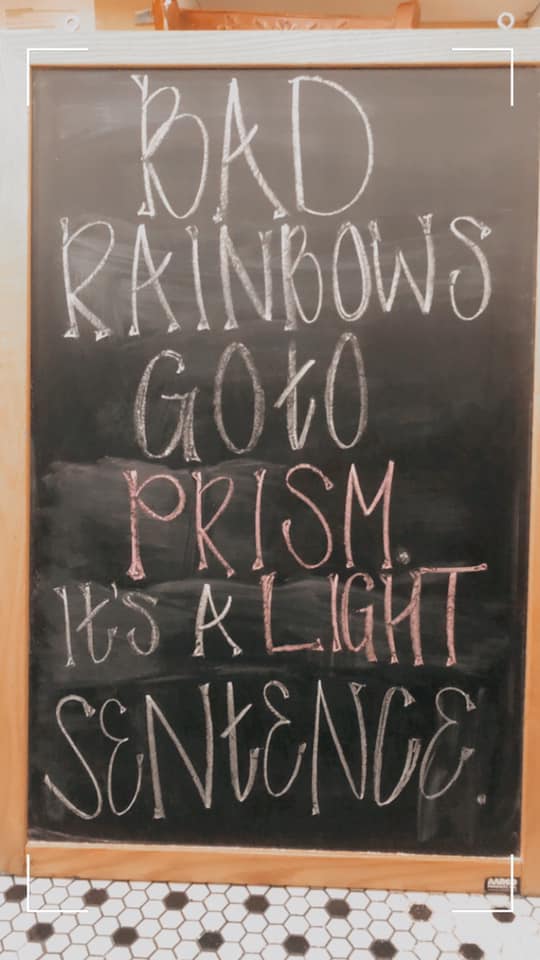 BAD
RAINBOWS
GOtO
PRISM.
It's A LIGHT
SENtENCE.